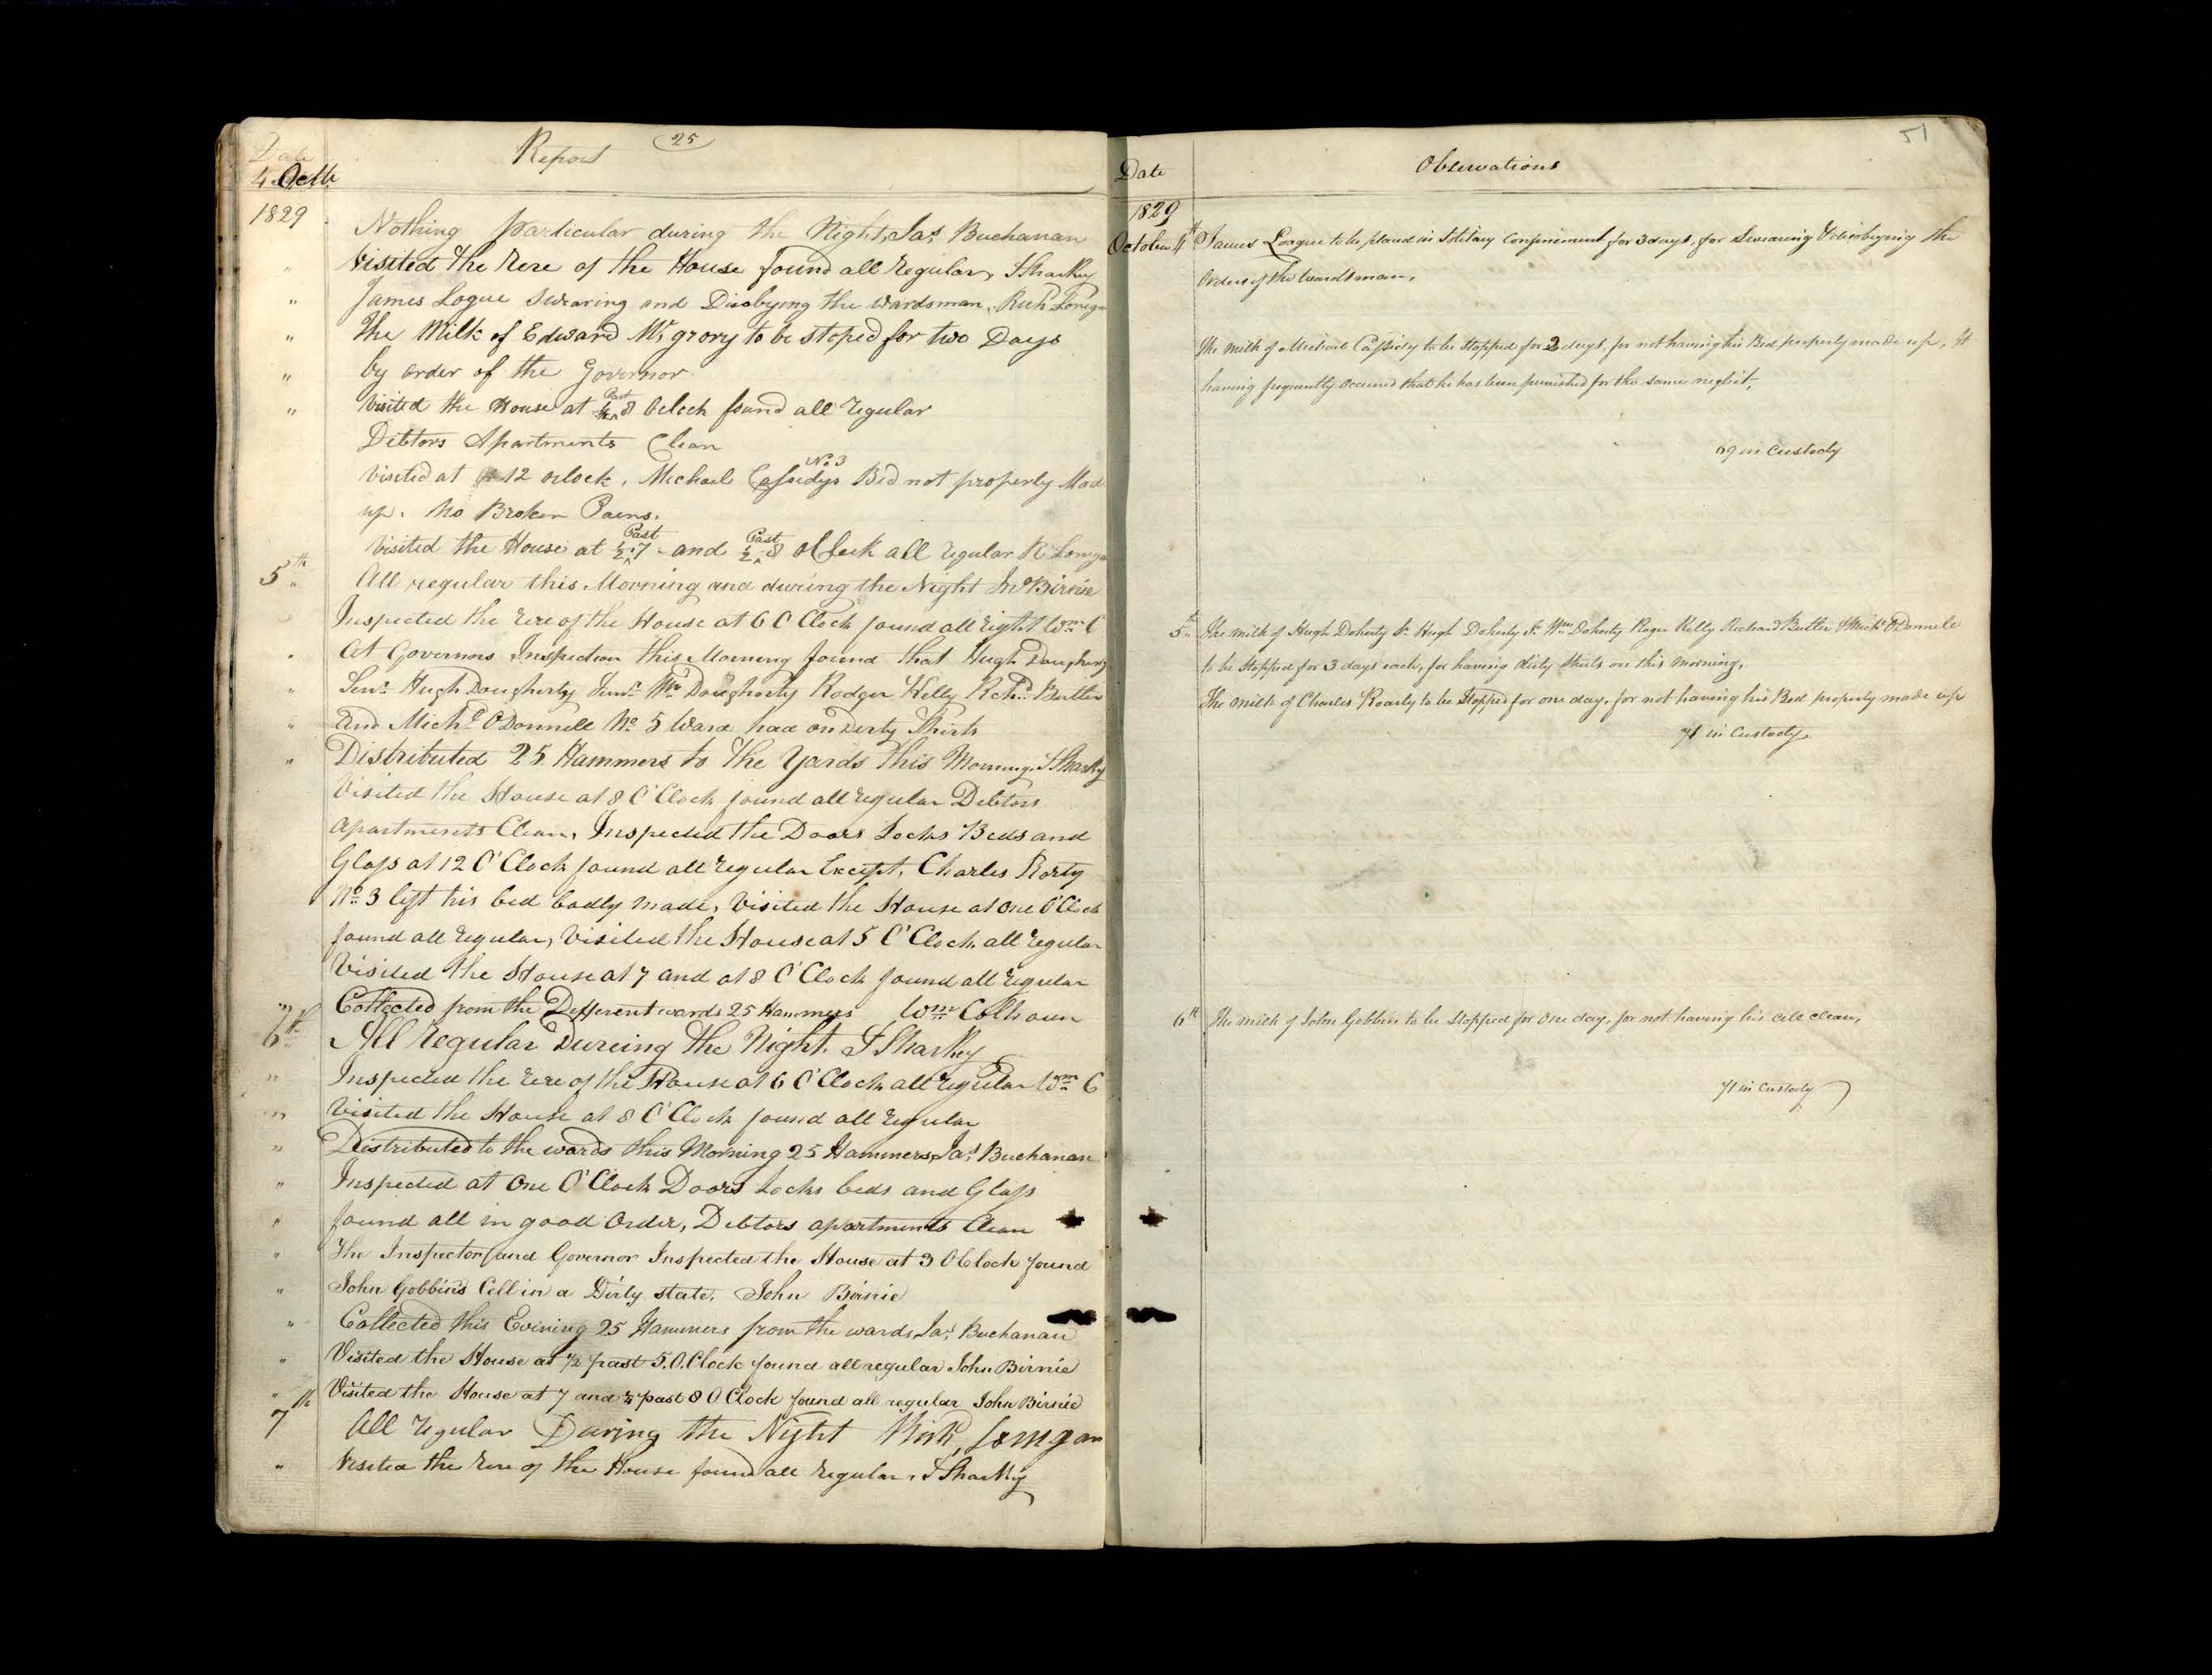 Date
Report 25
4 Octr
1829
Nothing particular during the Night, Jas Buchanan
" Visited the Rere of the House found all regular, J Sharkey
" James Logue Swearing and Disobying the Wardsman, Richd
" The Milk of Edward McGrory to be stoped for two Days
" by order of the Governor
" Visited the House at ½ Past 8 Oclock found all regular
Debtors Apartments Clean
Visited at 12 oclock, Michael Cassidys No 3 Bed not properly Mad
up. No Broken Pains.
Visited the House at ½ Past 7 and ½ Past 8 oClock all regular R
5th All regular this Morning and during the Night Jno Birnie
Inspected the rere of the House at 6 O Clock found all right Wm C
At Governors Inspection this Morning found that Hugh Dougherty
" Senr Hugh Dougherty Junr Wm Dougherty Rodger Kelly Richd Butler
" and Michl O Donnell No 5 Ward had on Dirty Shirts
" Distributed 25 Hammers to the Yards this Morning, J Sharkey
Visited the House at 8 O'Clock found all regular Debtors
apartments Clean, Inspected the Doors Locks Beds and
Glass at 12 O'Clock found all regular Except, Charles Rorty
No 3 left his bed badly made, Visited the House at One O'Clock
found all regular, Visited the House at 5 O'Clock all regular
Visited the House at 7 and at 8 O'Clock found all regular
" Collected from the Different wards 25 Hammers Wm Colhoun
6th All regular Dureing the Night. J Sharkey
" Inspected the rere of the House at 6 O'Clock all regular Wm C
" Visited the House at 8 O'Clock found all regular
" Distributed to the wards this Morning 25 Hammers, Jas Buchanan
" Inspected at One O'Clock Doors Locks beds and Glass
" found all in good Order, Debtors apartments Clean
" The Inspector and Governor Inspected the House at 3 O Clock found
" John Gobbins Cell in a Dirty state, John Birnie
" Collected this Evening 25 Hammers from the wards, Jas Buchanan
" Visited the House at ½ past 5.O.Clock found all regular John Birnie
" Visited the House at 7 and ½ past 8 O Clock found all regular John Birnie
7th All regular During the Night Richd
" Visited the Rere of the House found all regular, J Sharkey
51
Date
Observations
1829
October 4th James Loague to be placed in Solitary Confinement for 3 days, for Swearing & disobeying the
Orders of the Wardsman,
The milk of Michael Cassidy to be stopped for 2 days, for not having his Bed properly made up, It
having frequently occured that he has been punished for the same neglect,
69 in Custody
5th The milk of Hugh Doherty Sr Hugh Doherty Jr Wm Doherty Roger Kelly Richard Butler & Michl O Donnele
to be Stopped for 3 days each, for having dirty Shirts on this morning,
The milk of Charles Roarty to be Stopped for one day, for not having his Bed properly made up
71 in Custody
6th The milk of John Gobbin to be Stopped for one day, for not having his cell clean,
71 in Custody